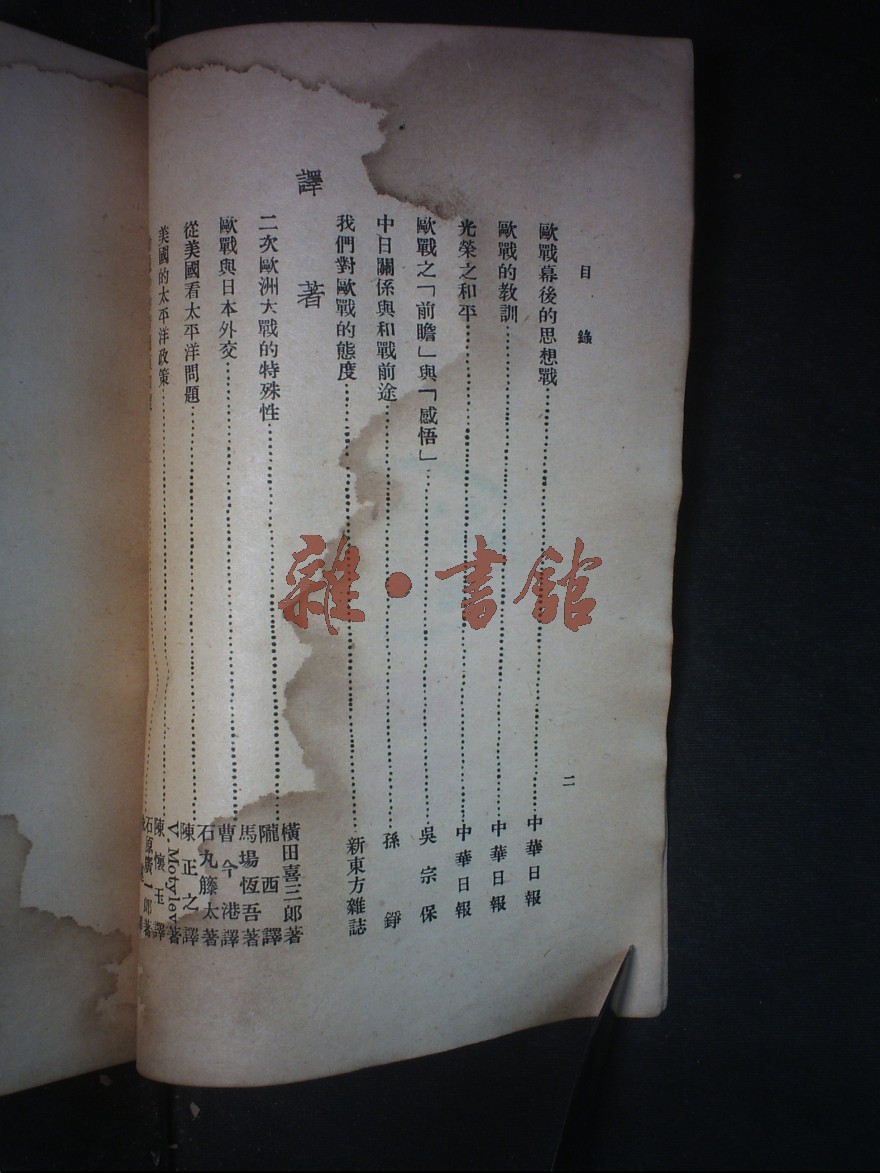 目錄
二
歐戰幕後的思想戰……中華日報
歐戰的教訓……中華日報
光榮之和平……中華日報
歐戰之「前瞻」與「感悟」……吳宗保
中日關係與和戰前途……孫錚
我們對歐戰的態度……新東方雜誌
譯著
二次歐洲大戰的特殊性……橫田喜三郎著 隴西譯
歐戰與日本外交……馬場恆吾著 曹今港譯
從美國看太平洋問題……石丸籐太著 陳正之譯
美國的太平洋政策……V. Motylev著 陳懷玉譯
石原廣一郎著
雜·書館